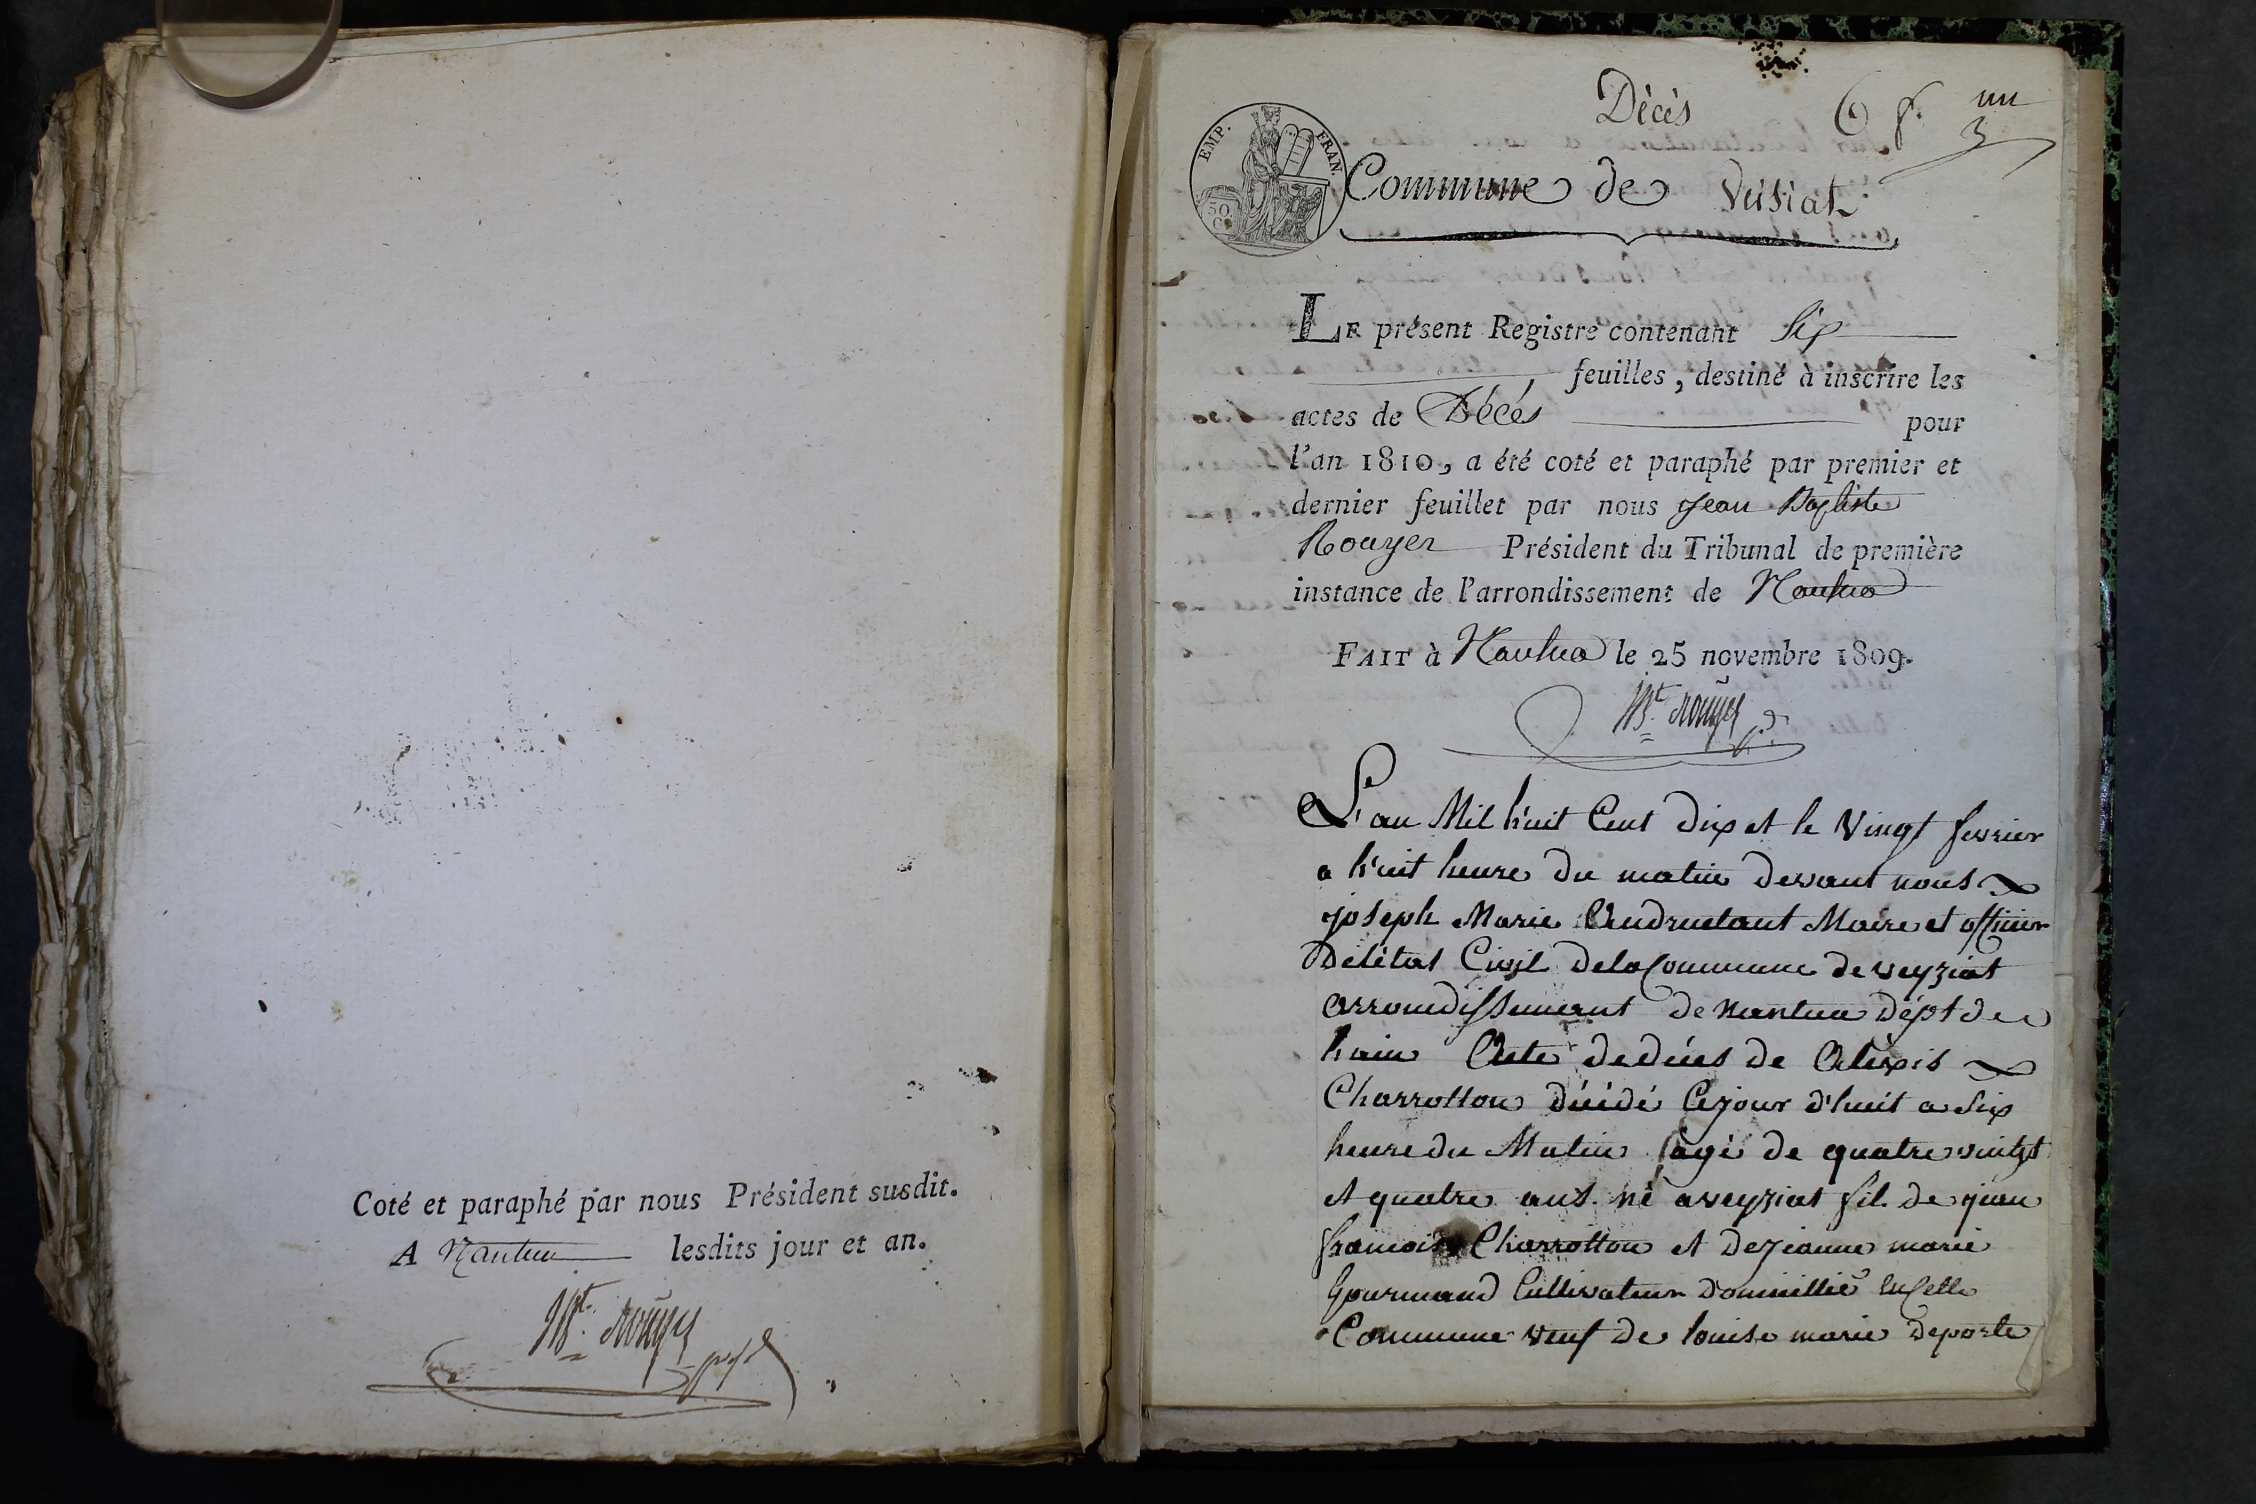 Coté et paraphé par nous Président susdit.
A Nantua lesdits jour et an.
JBt. rouyer
Décès 6 f. un
3
EMP. FRAN.
50
C.
Commune de Vesiat
LE présent Registre contenant six
feuilles, destiné à inscrire les
actes de Décés pour
l'an 1810, a été coté et paraphé par premier et
dernier feuillet par nous Jean Baptiste
Rouyer Président du Tribunal de première
instance de l'arrondissement de Nantua
FAIT à Nantua le 25 novembre 1809.
JBt. rouyer
L'an Mil huit Cent dix et le Vingt fevrier
a huit heure du matin devant nous
joseph Marie Maire et officier
De létat Civil dela Commune de veyziat
arrondissement de Nantua dépt de
hain Acte dedécés de Alexis
Charrotton décédé Cejour d'huit a six
heure du Matin agé de quatre vingt
et quatre ans né aveyziat fil de jean
francois Charrotton et dejeanne marie
Gourmand Cultivateur Domicillié en Cette
Commune veuf de louise marie deporte